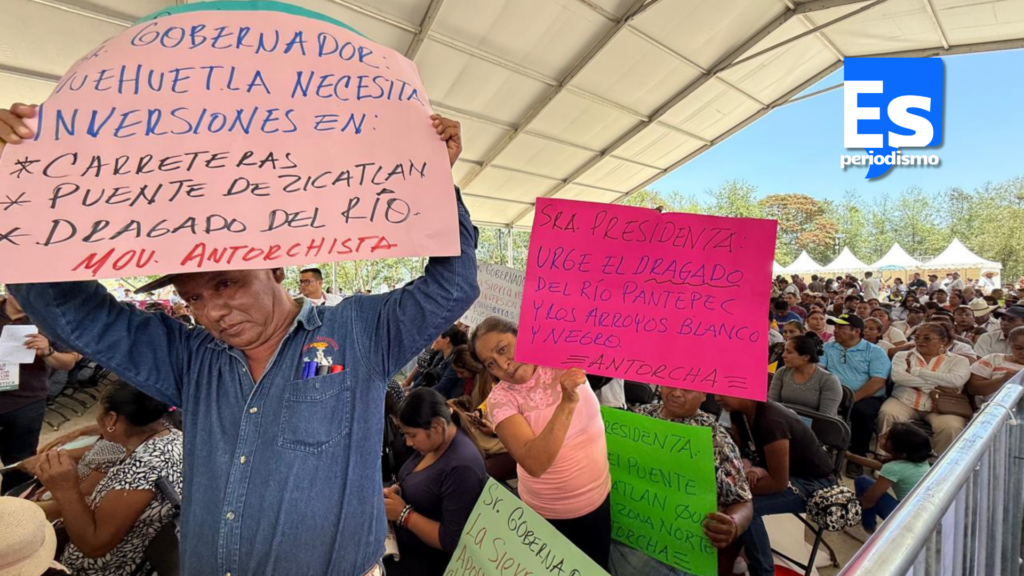 GOBERNADOR:
HUEHUETLA NECESITA
INVERSIONES EN:
* CARRETERAS
* PUENTE DE ZICATLAN
* DRAGADO DEL RÍO.
MOV. ANTORCHISTA
SRA. PRESIDENTA:
URGE EL DRAGADO
DEL RÍO PANTEPEC
Y LOS ARROYOS BLANCO
Y NEGRO.
=ANTORCHA=
PRESIDENTA:
EL PUENTE
ZONA NORTE
ANTORCHA=
Sr. GOBERNADOR
La Sierra
Es
periodismo